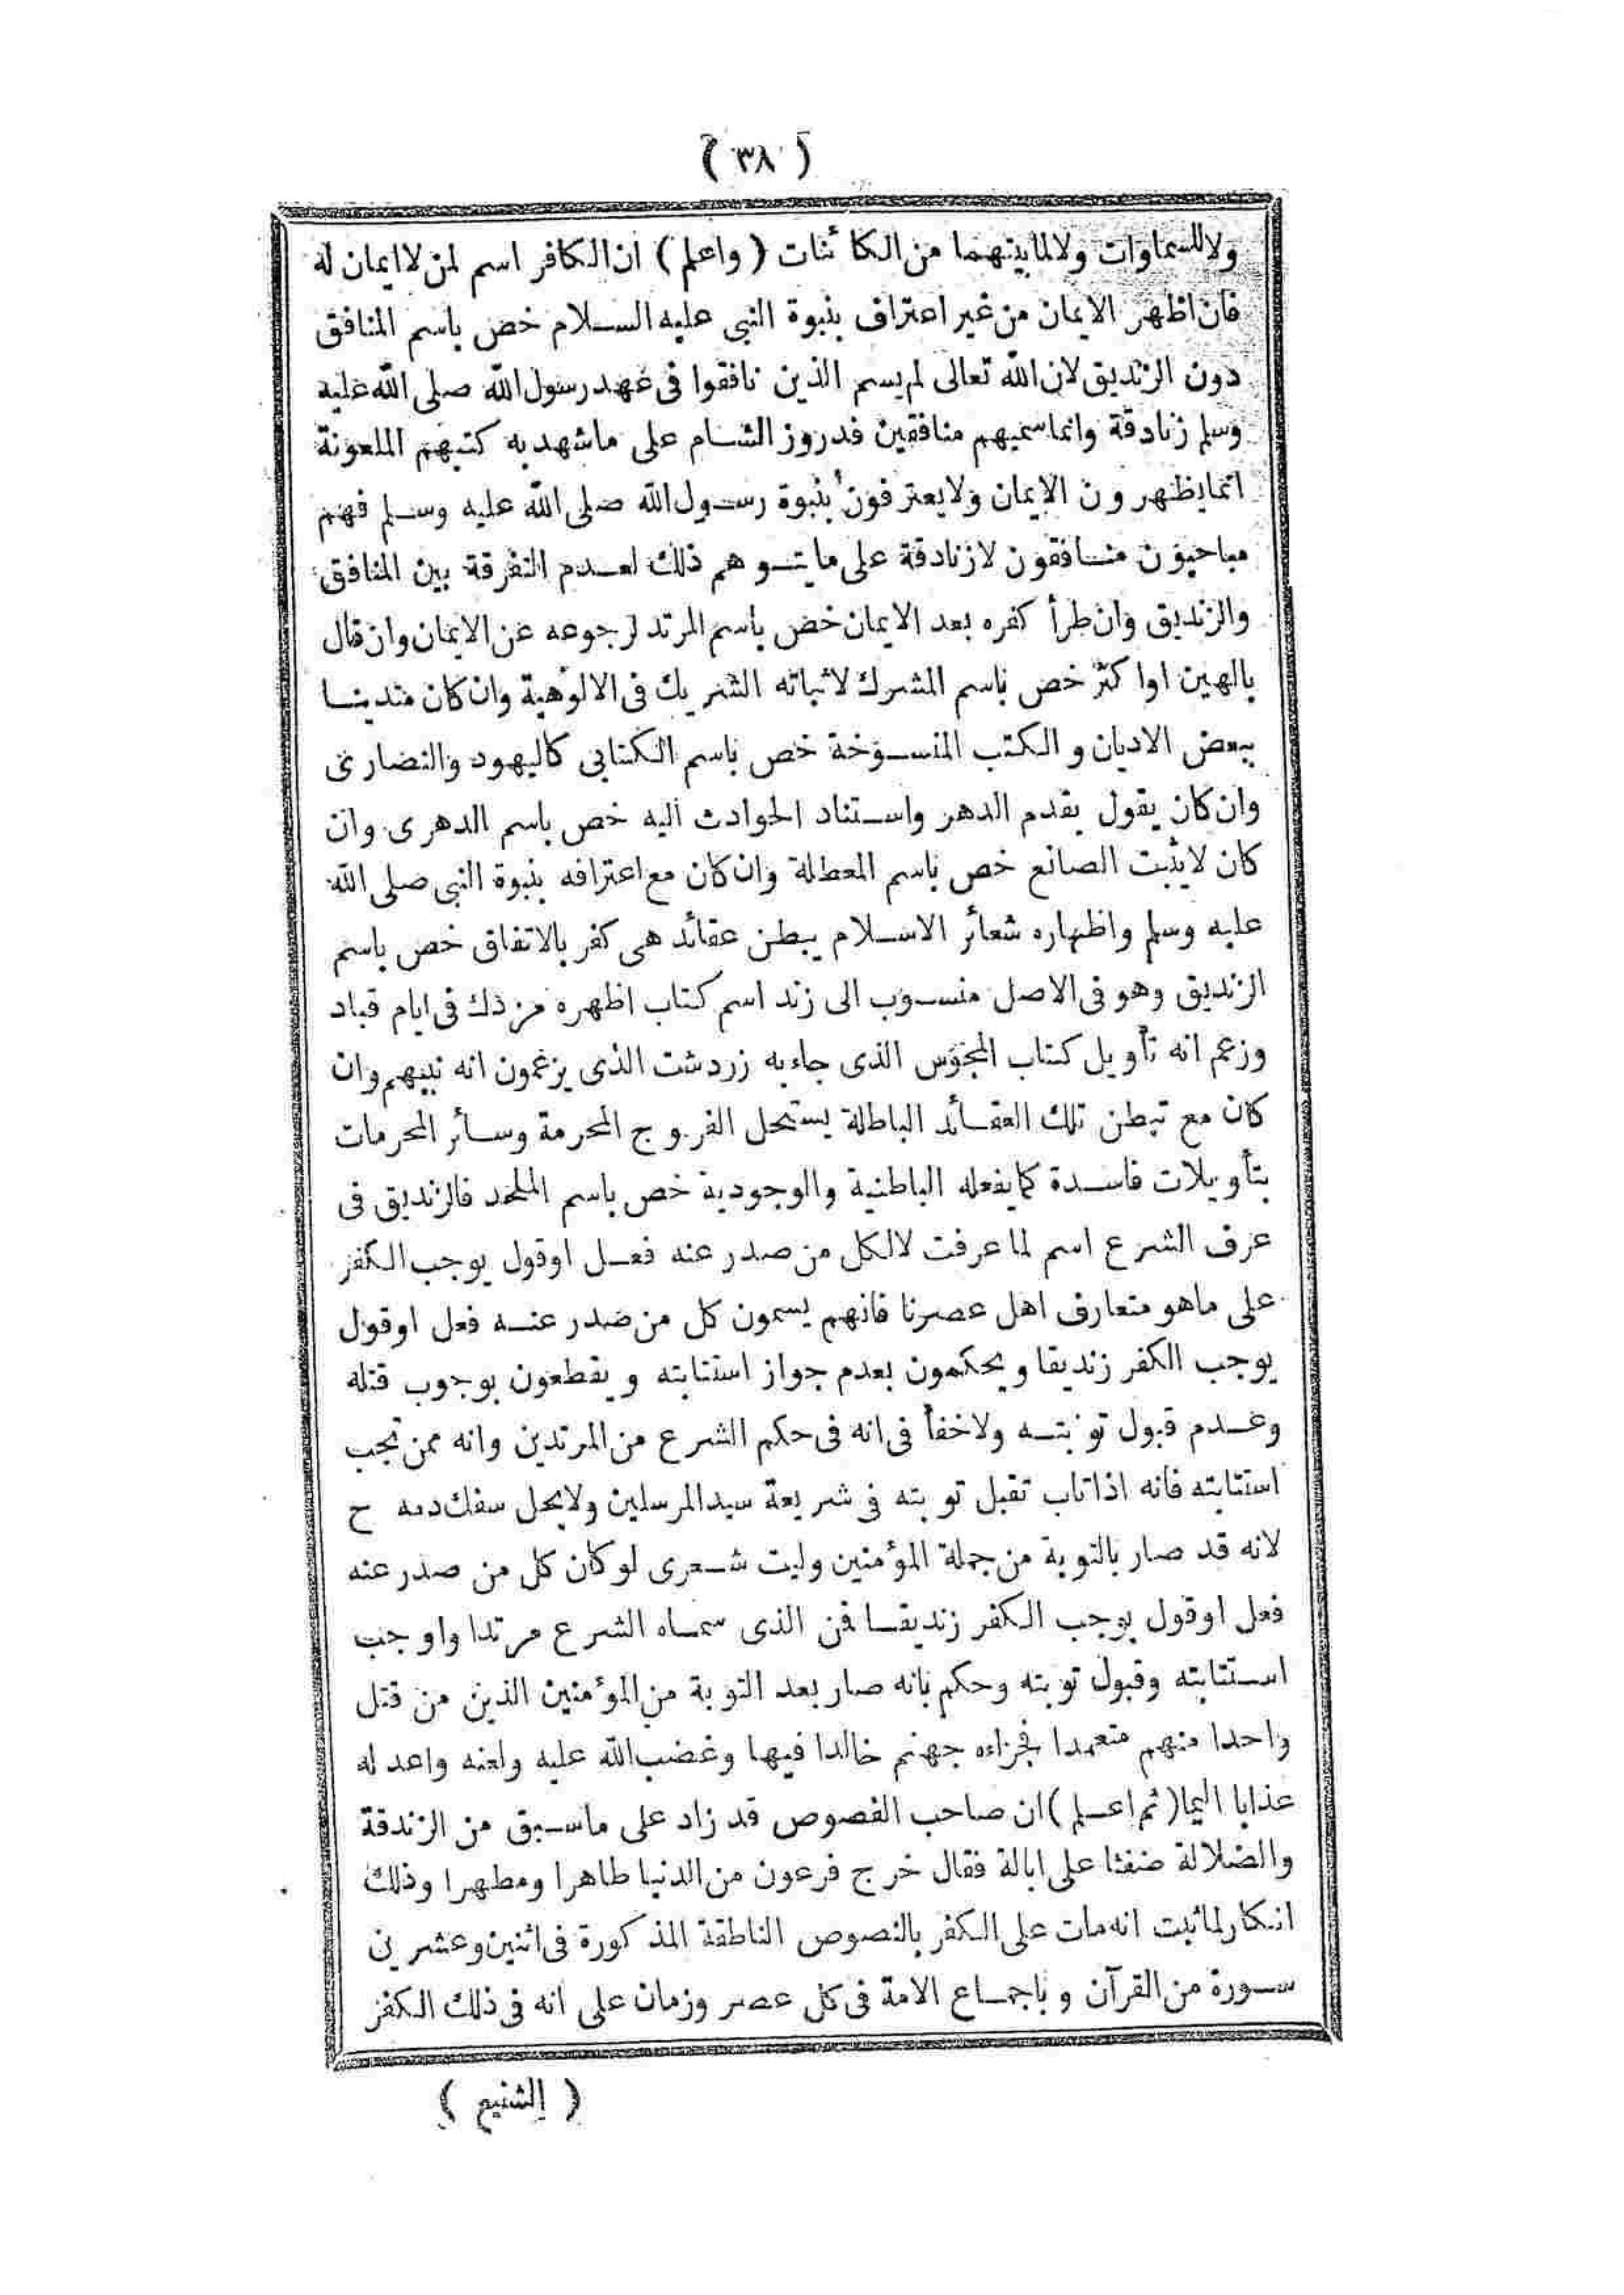 ( ٣٨ )
ولا للسماوات ولا لما بينهما من الكائنات ( واعلم ) ان الكافر اسم لمن لا ايمان له
فان اظهر الايمان من غير اعتراف بنبوة النبي عليه السلام خص باسم المنافق
دون الزنديق لان الله تعالى لم يسم الذين نافقوا في عهد رسول الله صلى الله عليه
وسلم زنادقة وانما سميهم منافقين فدروز الشام على ما شهد به كتبهم الملعونة
انما يظهرون الايمان ولا يعترفون بنبوة رسول الله صلى الله عليه وسلم فهم
مباحيون منافقون لا زنادقة على ما يتوهم ذلك لعدم التفرقة بين المنافق
والزنديق وان طرأ كفره بعد الايمان خص باسم المرتد لرجوعه عن الايمان وان قال
بالهين او اكثر خص باسم المشرك لاثباته الشريك في الالوهية وان كان متدينا
ببعض الاديان و الكتب المنسوخة خص باسم الكتابي كاليهود والنصارى
وان كان يقول بقدم الدهر واستناد الحوادث اليه خص باسم الدهرى وان
كان لا يثبت الصانع خص باسم المعطلة وان كان مع اعترافه بنبوة النبي صلى الله
عليه وسلم واظهاره شعائر الاسلام يبطن عقائد هى كفر بالاتفاق خص باسم
الزنديق وهو في الاصل منسوب الى زند اسم كتاب اظهره مزدك في ايام قباد
وزعم انه تأويل كتاب المجوس الذى جاء به زردشت الذى يزعمون انه نبيهم وان
كان مع تبطن تلك العقائد الباطلة يستحل الفروج المحرمة وسائر المحرمات
بتأويلات فاسدة كما يفعله الباطنية والوجودية خص باسم الملحد فالزنديق في
عرف الشرع اسم لما عرفت لا لكل من صدر عنه فعل او قول يوجب الكفر
على ما هو متعارف اهل عصرنا فانهم يسمون كل من صدر عنه فعل او قول
يوجب الكفر زنديقا ويحكمون بعدم جواز استتابته ويقطعون بوجوب قتله
وعدم قبول توبته ولا خفأ في انه في حكم الشرع من المرتدين وانه ممن تجب
استتابته فانه اذا تاب تقبل توبته في شريعة سيد المرسلين ولا يحل سفك دمه ح
لانه قد صار بالتوبة من جملة المؤمنين وليت شعرى لو كان كل من صدر عنه
فعل او قول يوجب الكفر زنديقا فمن الذى سماه الشرع مرتدا واوجب
استتابته وقبول توبته وحكم بانه صار بعد التوبة من المؤمنين الذين من قتل
واحدا منهم متعمدا فجزاءه جهنم خالدا فيها وغضب الله عليه ولعنه واعد له
عذابا اليما ( ثم اعلم ) ان صاحب الفصوص قد زاد على ما سبق من الزندقة
والضلالة ضغثا على ابالة فقال خرج فرعون من الدنيا طاهرا ومطهرا وذلك
انكار لما ثبت انه مات على الكفر بالنصوص الناطقة المذكورة في اثنين وعشرين
سورة من القرآن وباجماع الامة في كل عصر وزمان على انه في ذلك الكفر
( الشنيع )